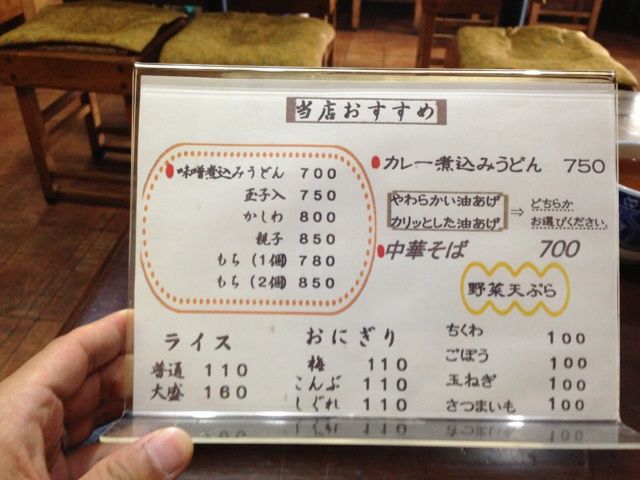 当店おすすめ
味噌煮込みうどん 700
玉子入 750
かしわ 800
親子 850
もち (1個) 780
もち (2個) 850
カレー煮込みうどん 750
やわらかい油あげ
カリッとした油あげ
⇒ どちらか
お選びください。
中華そば 700
野菜天ぷら
ちくわ 100
ごぼう 100
玉ねぎ 100
さつまいも 100
ライス
普通 110
大盛 160
おにぎり
梅 110
こんぶ 110
しぐれ 110